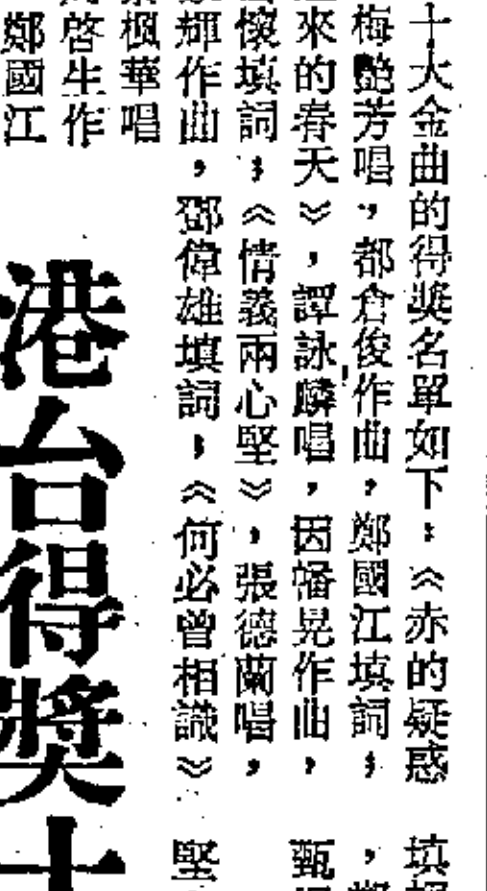 十大金曲的得獎名單如下:《赤的疑惑
梅艷芳唱,都倉俊作曲,鄭國江填詞;
來的春天》,譚詠麟唱,因幡晃作曲,
懷填詞;《情義兩心堅》,張德蘭唱,
輝作曲,鄧偉雄填詞;《何必曾相識》
楓華唱
啓生作
鄭國江
港台得獎十
填
,鄭
甄
堅